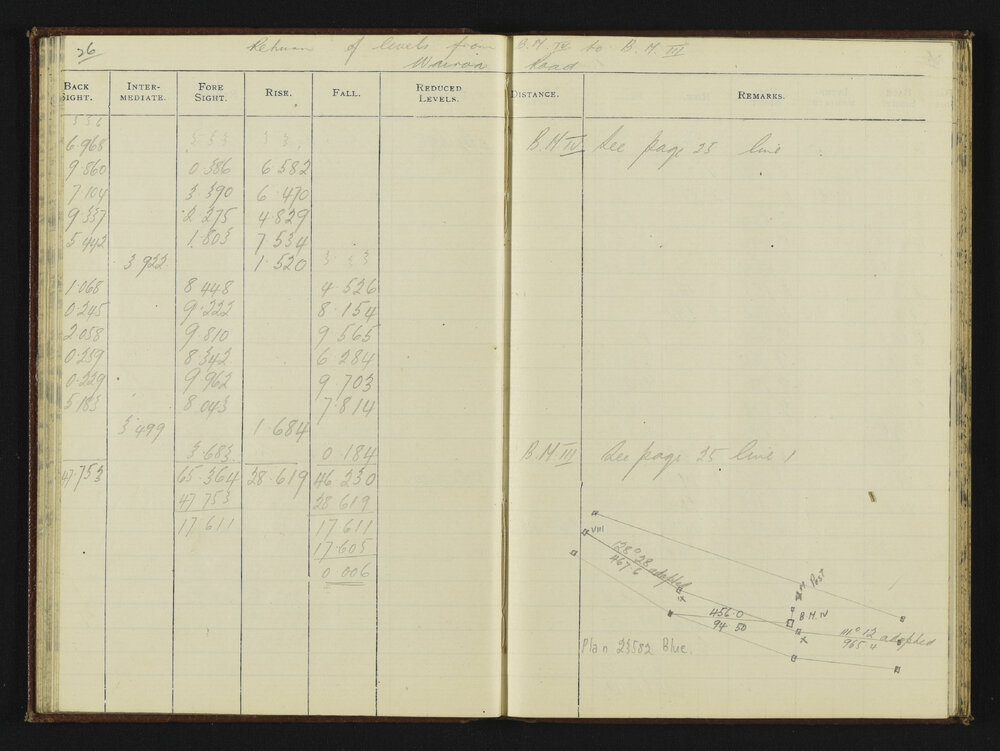 26
Return of levels from B.M. IV to B.M. III
Wairoa Road
BACK SIGHT. INTER-MEDIATE. FORE SIGHT. RISE. FALL. REDUCED LEVELS. DISTANCE. REMARKS.
6.968 B.M IV See page 25 line
9.860 0.386 6.582
7.104 3.390 6.470
9.337 2.275 4.829
5.442 1.803 7.534
3.922 1.520
1.068 8.448 4.526
0.245 9.222 8.154
2.058 9.810 9.565
0.259 8.342 6.284
0.229 9.962 9.703
5.183 8.043 7.814
3.499 1.684
3.683 0.184 B.M III See page 25 line 1
47.753 65.364 28.619 46.230
47.753 28.619
17.611 17.611
17.605
0.006
VIII
128° 28 adopted
467.6
Post
456.0
94.50
B M. IV
111° 12 adopted
965.4
Plan 23582 Blue.